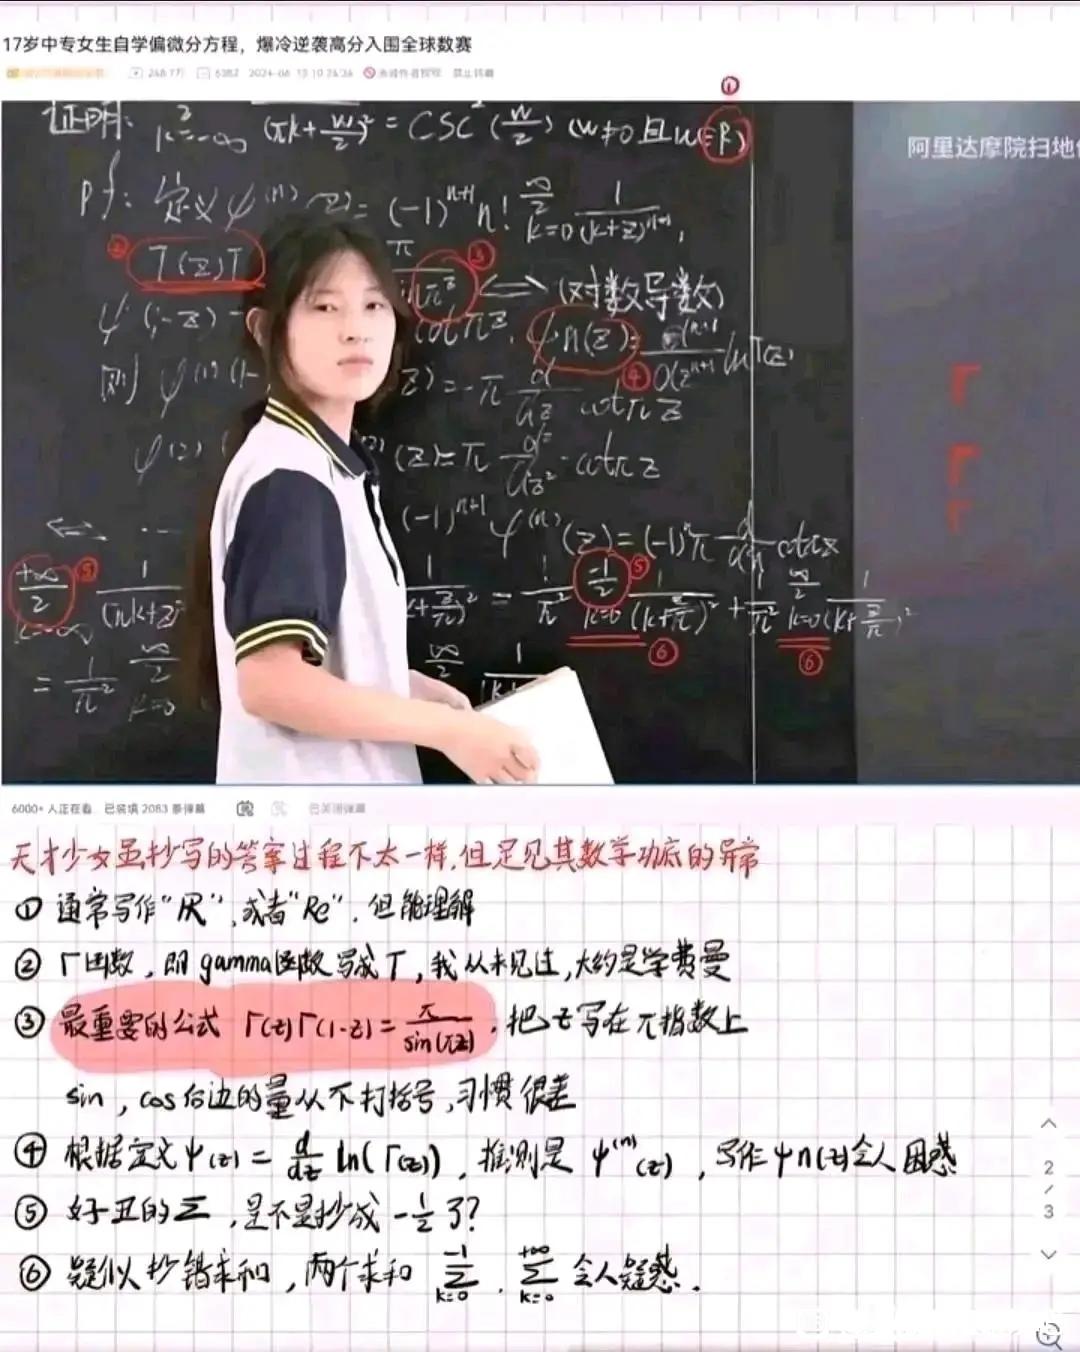 17岁中专女生自学偏微分方程，爆冷逆袭高分入围全球数赛
248.7万 6382 2024-06-13 10:24:26 未经作者授权 禁止转载
①
证明: 2 k=-∞ (πk+w/2)² = CSC²(w/2) (w≠0且w=R)
阿里达摩院扫地
pf: 定义ψ⁽ⁿ⁾(z)= (-1)ⁿ⁺¹n! ∞/2 k=0 1/(k+z)ⁿ⁺¹,
② T(z)T π/inπᶻ ③ ⟺ (对数导数)
ψ(1-z)- cotπz, ψn(z)= dⁿ⁺¹/dzⁿ⁺¹ lnT(z) ④
则 ψ⁽¹⁾(1- z)=-π d/dz cotπz
ψ⁽²⁾ (z)=π d²/dz² cotπz
⟸ ... (-1)ⁿ⁺¹ ψ⁽ⁿ⁾(z)=(-1)ⁿπ d/dη cotπz
+∞/2 k=-∞ ⑤ 1/(πk+z) k+z/π)² = 1/π² -1/2 k=0 ⑤ 1/(k+z/π)² + 1/π² ∞/2 k=0 1/(k+z/π)²
⑥ ⑥
= 1/π² ∞/2 k=0 ∞/2 1/(k+
Γ
Γ
Γ
6000+ 人正在看 已装填 2083 条弹幕 已关闭弹幕
天才少女虽抄写的答案过程不太一样,但足见其数学功底的异常
① 通常写作“ℝ”,或者“Re”,但能理解
② Γ函数,即gamma函数写成T,我从未见过,大约是学费曼
③ 最重要的公式 Γ(z)Γ(1-z)=π/sin(πz),把z写在π指数上
sin, cos后边的量从不打括号,习惯很差
④ 根据定义ψ(z)= d/dz ln(Γ(z)),推测是 ψ⁽ⁿ⁾(z),写作ψn(z)令人困惑
⑤ 好丑的Σ,是不是抄成-1/2了?
⑥ 疑似抄错求和,两个求和 -1 Σ k=0, +∞ Σ k=0 令人疑惑.
2/3